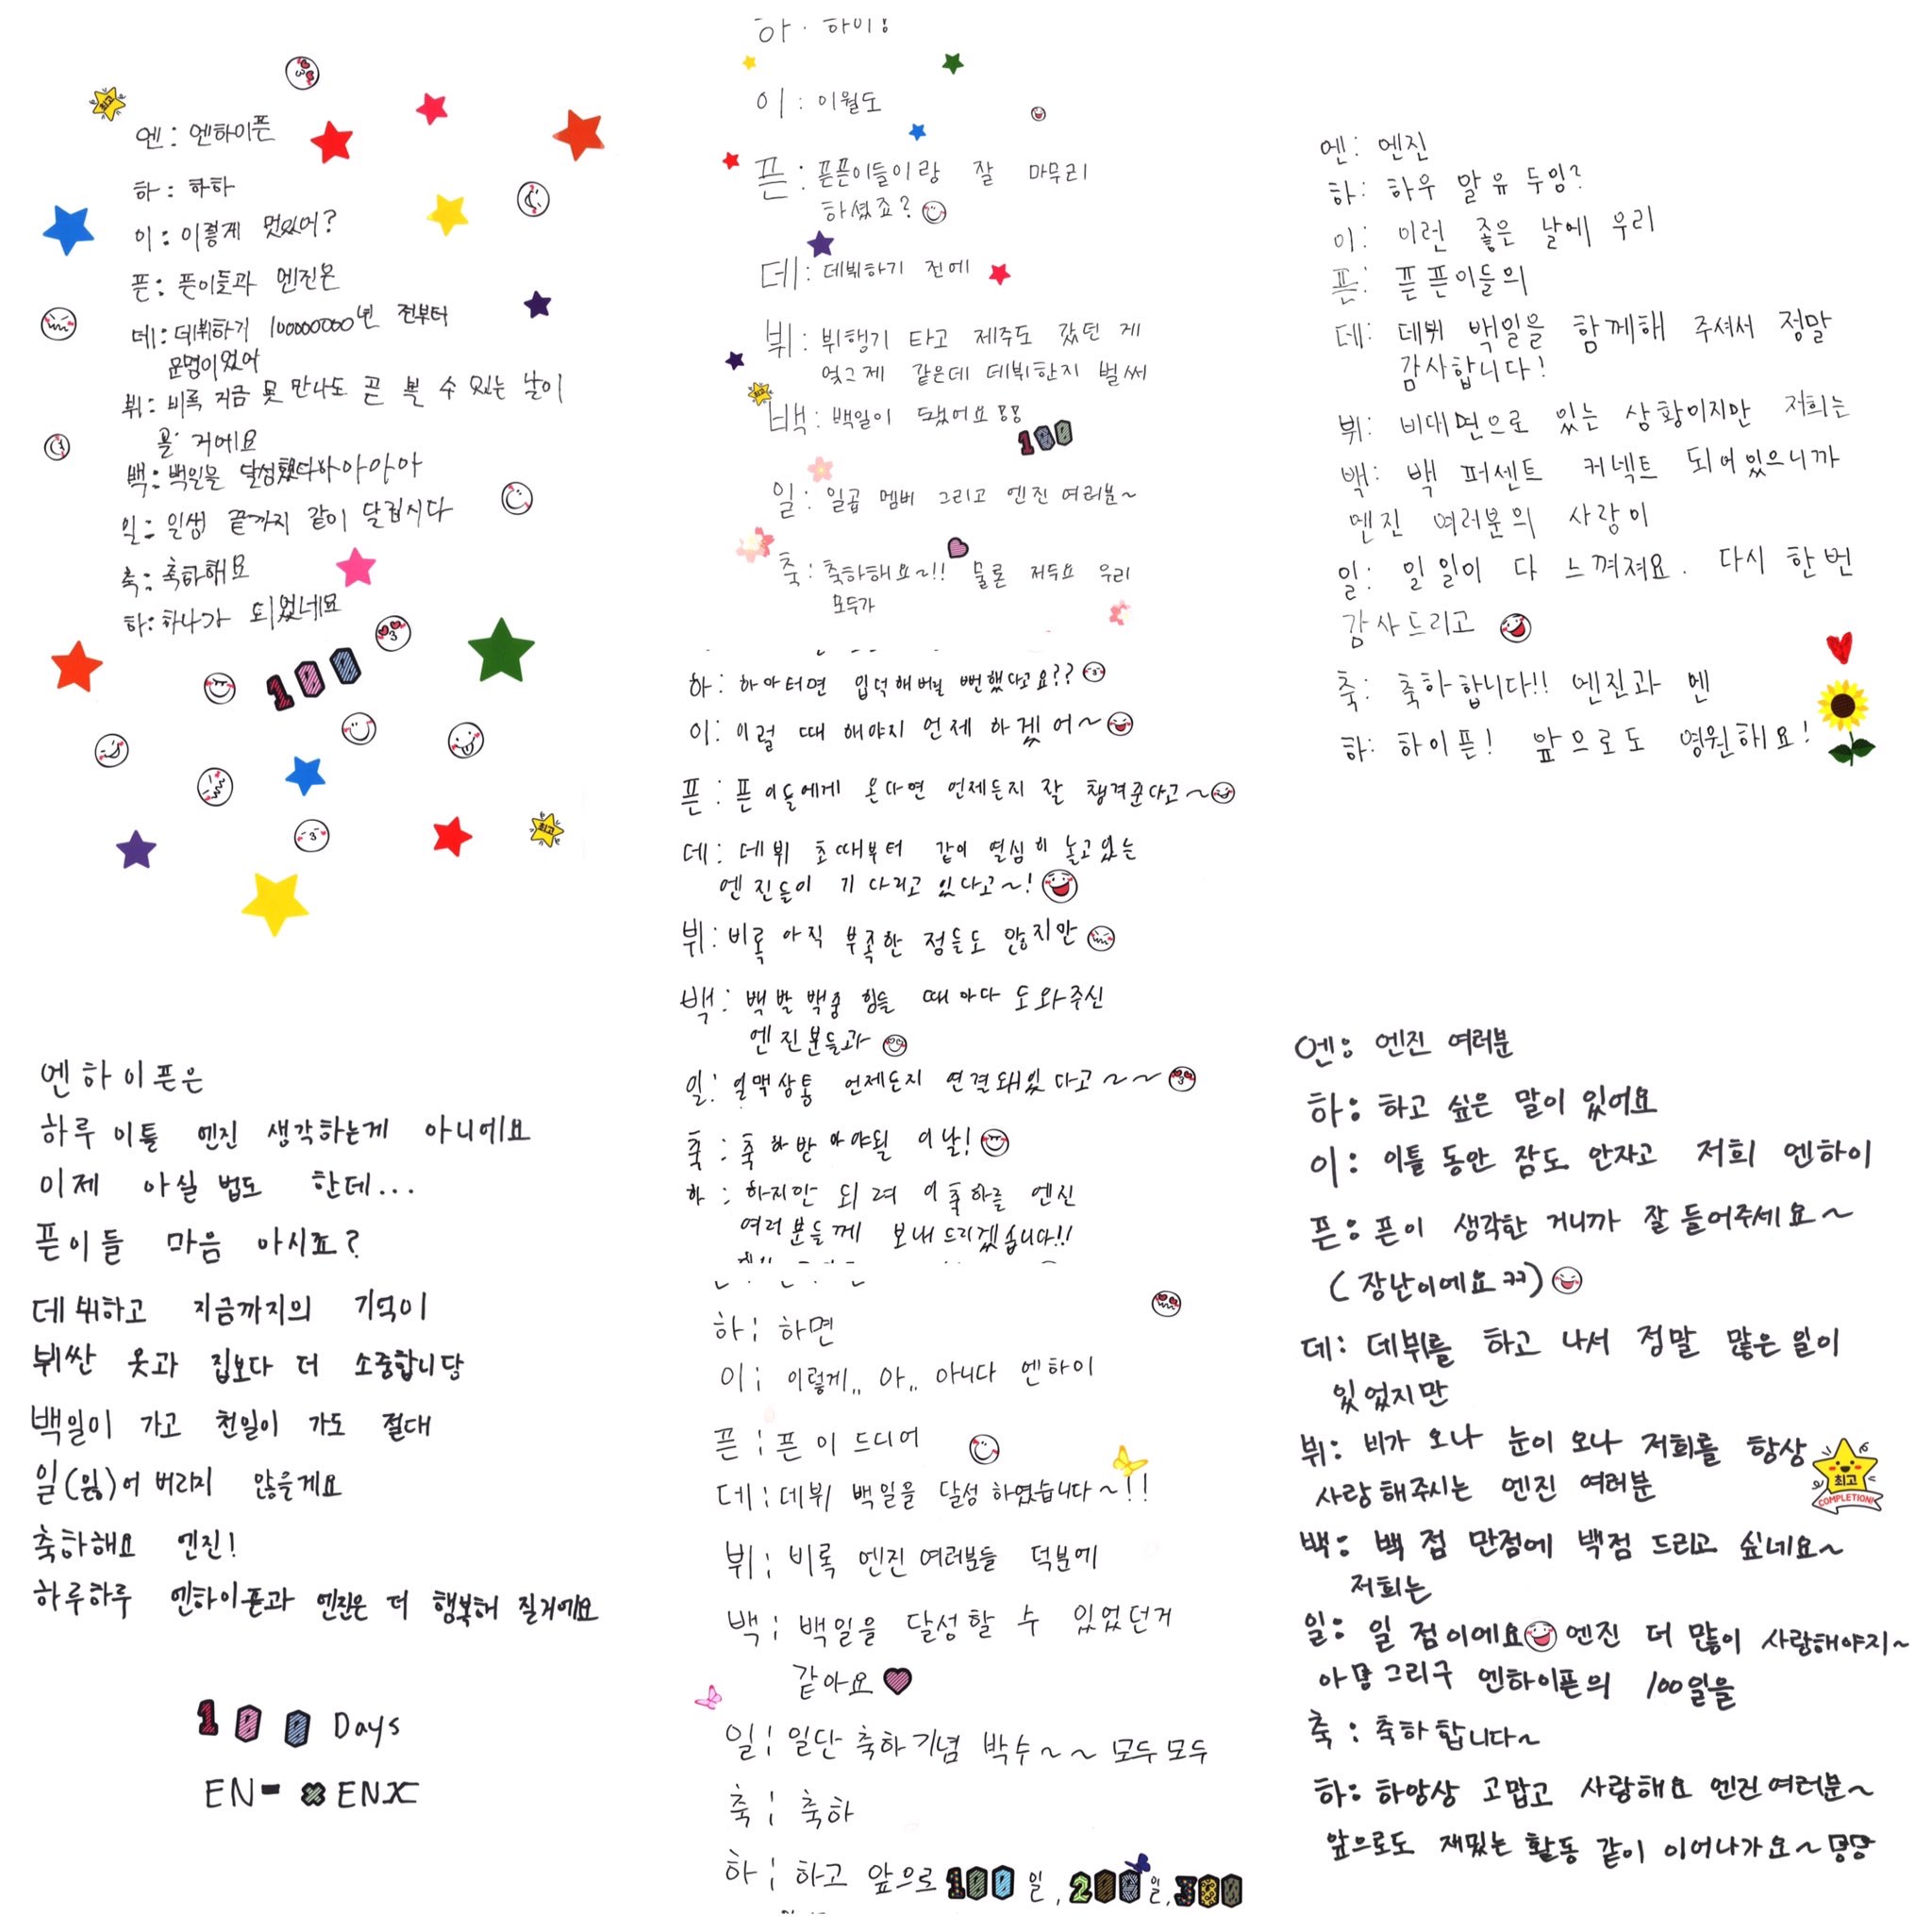 엔: 엔하이픈
하: 하하
이: 이렇게 멋있어?
픈: 픈이들과 엔진은
데: 데뷔하기 100000000년 전부터
운명이었어
뷔: 비록 지금 못 만나도 곧 볼 수 있는 날이
올 거에요
백: 백일을 달성했다아아앙아
일: 일생 끝까지 같이 달립시다
축: 축하해요
하: 하나가 되었네요
100
최고
최고
엔하이픈은
하루 이틀 엔진 생각하는게 아니에요
이제 아실 법도 한데...
픈이들 마음 아시죠?
데뷔하고 지금까지의 기억이
뷔싼 옷과 집보다 더 소중합니당
백일이 가고 천일이 가도 절대
일(잃)어 버리지 않을게요
축하해요 엔진!
하루하루 엔하이픈과 엔진은 더 행복해 질거에요
100 Days
EN-
ENX
하: 하이!
이: 이월도
픈: 픈픈이들이랑 잘 마무리
하셨죠?
데: 데뷔하기 전에
뷔: 뷔행기 타고 제주도 갔던 게
엊그제 같은데 데뷔한지 벌써
최고
백: 백일이 됐어요!!
100
일: 일곱 멤버 그리고 엔진 여러분~
축: 축하해요~!! 물론 저두요 우리
모두가
하: 하마터면 입덕해버릴 뻔했다고요??
이: 이럴 때 해야지 언제 하겠어~
픈: 픈이들에게 온다면 언제든지 잘 챙겨준다고~
데: 데뷔 초때부터 같이 열심히 놀고있는
엔진들이 기다리고 있다고~!
뷔: 비록 아직 부족한 점들도 많지만
백: 백발백중 힘들 때마다 도와주신
엔진분들과
일: 일맥상통 언제든지 연결돼있다고~~
축: 축하받아야될 이날!
하: 하지만 되려 이 축하를 엔진
여러분들께 보내드리겠습니다!!
하: 하면
이: 이렇게,, 아,, 아니다 엔하이
픈: 픈이 드디어
데: 데뷔 백일을 달성 하였습니다~!!
뷔: 비록 엔진 여러분들 덕분에
백: 백일을 달성할 수 있었던거
같아요
일: 일단 축하기념 박수~~ 모두모두
축: 축하
하: 하고 앞으로 100일, 200일, 300
엔: 엔진
하: 하우 알 유 두잉?
이: 이런 좋은 날에 우리
픈: 픈픈이들의
데: 데뷔 백일을 함께해 주셔서 정말
감사합니다!
뷔: 비대면으로 있는 상황이지만 저희는
백: 백 퍼센트 커넥트 되어있으니까
엔진 여러분의 사랑이
일: 일일이 다 느껴져요. 다시 한번
감사드리고
축: 축하합니다!! 엔진과 엔
하: 하이픈! 앞으로도 영원해요!
엔: 엔진 여러분
하: 하고 싶은 말이 있어요
이: 이틀 동안 잠도 안자고 저희 엔하이
픈: 픈이 생각한 거니까 잘 들어주세요~
(장난이에요ㅋㅋ)
데: 데뷔를 하고 나서 정말 많은 일이
있었지만
뷔: 비가 오나 눈이 오나 저희를 항상
사랑해주시는 엔진 여러분
최고
COMPLETION!
백: 백 점 만점에 백점 드리고 싶네요~
저희는
일: 일 점이에요 엔진 더 많이 사랑해야지~
아맞 그리구 엔하이픈의 100일을
축: 축하합니다~
하: 하앙상 고맙고 사랑해요 엔진여러분~
앞으로도 재밌는 활동 같이 이어나가요~